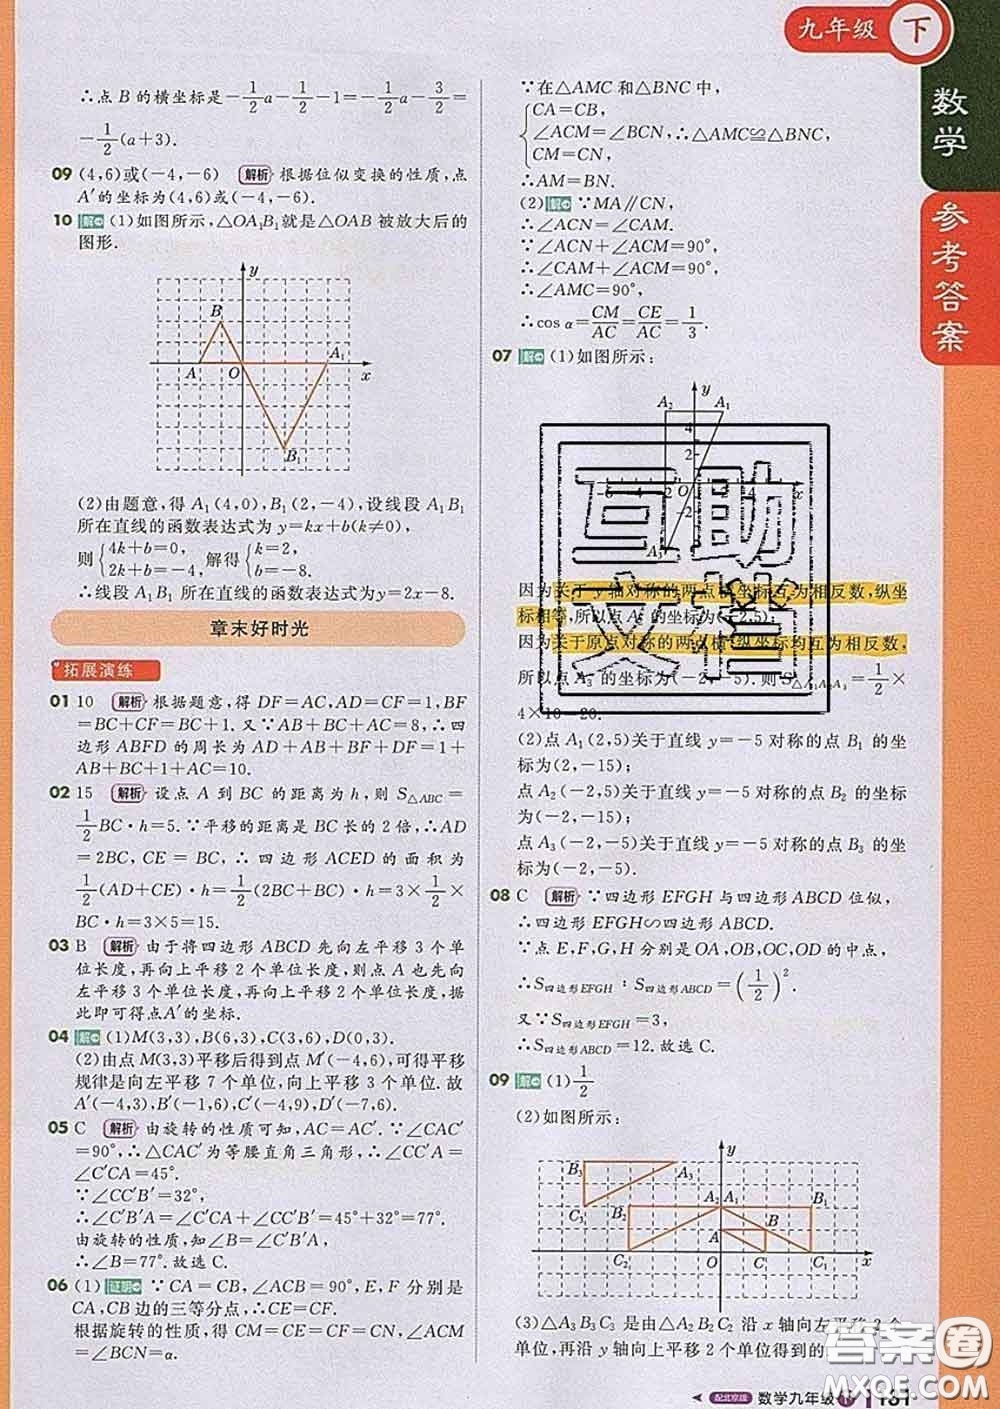 九年级 下
数学
参考答案
∴点 B 的横坐标是-1/2a-1/2-1=-1/2a-3/2=
-1/2(a+3).
09 (4,6)或(-4,-6) 解析 根据位似变换的性质,点
A′的坐标为(4,6)或(-4,-6).
10 解 (1)如图所示,△OA₁B₁就是△OAB 被放大后的
图形.
y
B
A₁
A
O
x
B₁
(2)由题意,得 A₁(4,0),B₁(2,-4),设线段 A₁B₁
所在直线的函数表达式为 y=kx+b(k≠0),
则{4k+b=0, 2k+b=-4. 解得{k=2, b=-8.
∴线段 A₁B₁ 所在直线的函数表达式为y=2x-8.
章末好时光
拓展演练
01 10 解析 根据题意,得 DF=AC,AD=CF=1,BF
=BC+CF=BC+1. 又∵AB+BC+AC=8,∴四
边形 ABFD 的周长为 AD+AB+BF+DF=1+
AB+BC+1+AC=10.
02 15 解析 设点 A 到 BC 的距离为 h,则 S△ABC=
1/2BC·h=5.∵平移的距离是 BC 长的 2 倍,∴AD
=2BC,CE=BC,∴四边形 ACED 的面积为
1/2(AD+CE)·h=1/2(2BC+BC)·h=3×1/2×
BC·h=3×5=15.
03 B 解析 由于将四边形 ABCD 先向左平移 3 个单
位长度,再向上平移 2 个单位长度,则点 A 也先向
左平移 3 个单位长度,再向上平移 2 个单位长度,据
此即可得点A′的坐标.
04 解 (1)M(3,3),B(6,3),C(3,6),D(0,3).
(2)由点 M(3,3)平移后得到点 M′(-4,6),可得平移
规律是向左平移 7 个单位,向上平移 3 个单位. 故
A′(-4,3),B′(-1,6),C′(-4,9),D′(-7,6).
05 C 解析 由旋转的性质可知,AC=AC′. ∵∠CAC′
=90°,∴△CAC′为等腰直角三角形,∴∠CC′A=
∠C′CA=45°.
∵∠CC′B′=32°,
∴∠C′B′A=∠C′CA+∠CC′B′=45°+32°=77°.
由旋转的性质可知,∠B=∠C′B′A,
∴∠B=77°. 故选 C.
06 (1)证明 ∵CA=CB,∠ACB=90°,E,F 分别是
CA,CB 边的三等分点,∴CE=CF.
根据旋转的性质,得 CM=CE=CF=CN,∠ACM=
∠BCN=α.
∵在△AMC 和△BNC 中,
{CA=CB,
∠ACM=∠BCN,∴△AMC≌△BNC,
CM=CN,
∴AM=BN.
(2)解 ∵MA∥CN,
∴∠ACN=∠CAM.
∵∠ACN+∠ACM=90°,
∴∠CAM+∠ACM=90°,
∴∠AMC=90°.
∴cos α=CM/AC=CE/AC=1/3.
07 解 (1)如图所示:
y
A₂
A₁
4
2
-6
-2
O
x
-2
A₃
因为关于 y 轴对称的两点横坐标互为相反数,纵坐
标相等,所以点 A₂ 的坐标为(-2,5);
因为关于原点对称的两点横、纵坐标均互为相反数,
所以点 A₃ 的坐标为(-2,-5). 则 S△A₁A₂A₃=1/2×
4×10=20.
(2)点 A₁(2,5)关于直线 y=-5 对称的点 B₁ 的坐
标为(2,-15);
点 A₂(-2,5)关于直线 y=-5 对称的点 B₂ 的坐标
为(-2,-15);
点 A₃(-2,-5)关于直线 y=-5 对称的点 B₃ 的坐
标为(-2,-5).
08 C 解析 ∵四边形 EFGH 与四边形 ABCD 位似,
∴四边形 EFGH∽四边形 ABCD.
∵点 E,F,G,H 分别是 OA,OB,OC,OD 的中点,
∴S四边形EFGH:S四边形ABCD=(1/2)².
又∵S四边形EFGH=3,
∴S四边形ABCD=12. 故选 C.
09 解 (1)1/2
(2)如图所示:
y
B₃
A₃
C₃
B₂
A₂
A₁
B₁
A
B
C₂
O
C
C₁
x
(3)△A₃B₃C₃ 是由△A₂B₂C₂ 沿 x 轴向左平移 2 个
单位,再沿 y 轴向上平移 2 个单位得到的
配北京版 数学九年级 下 131
互助
文档
答案圈